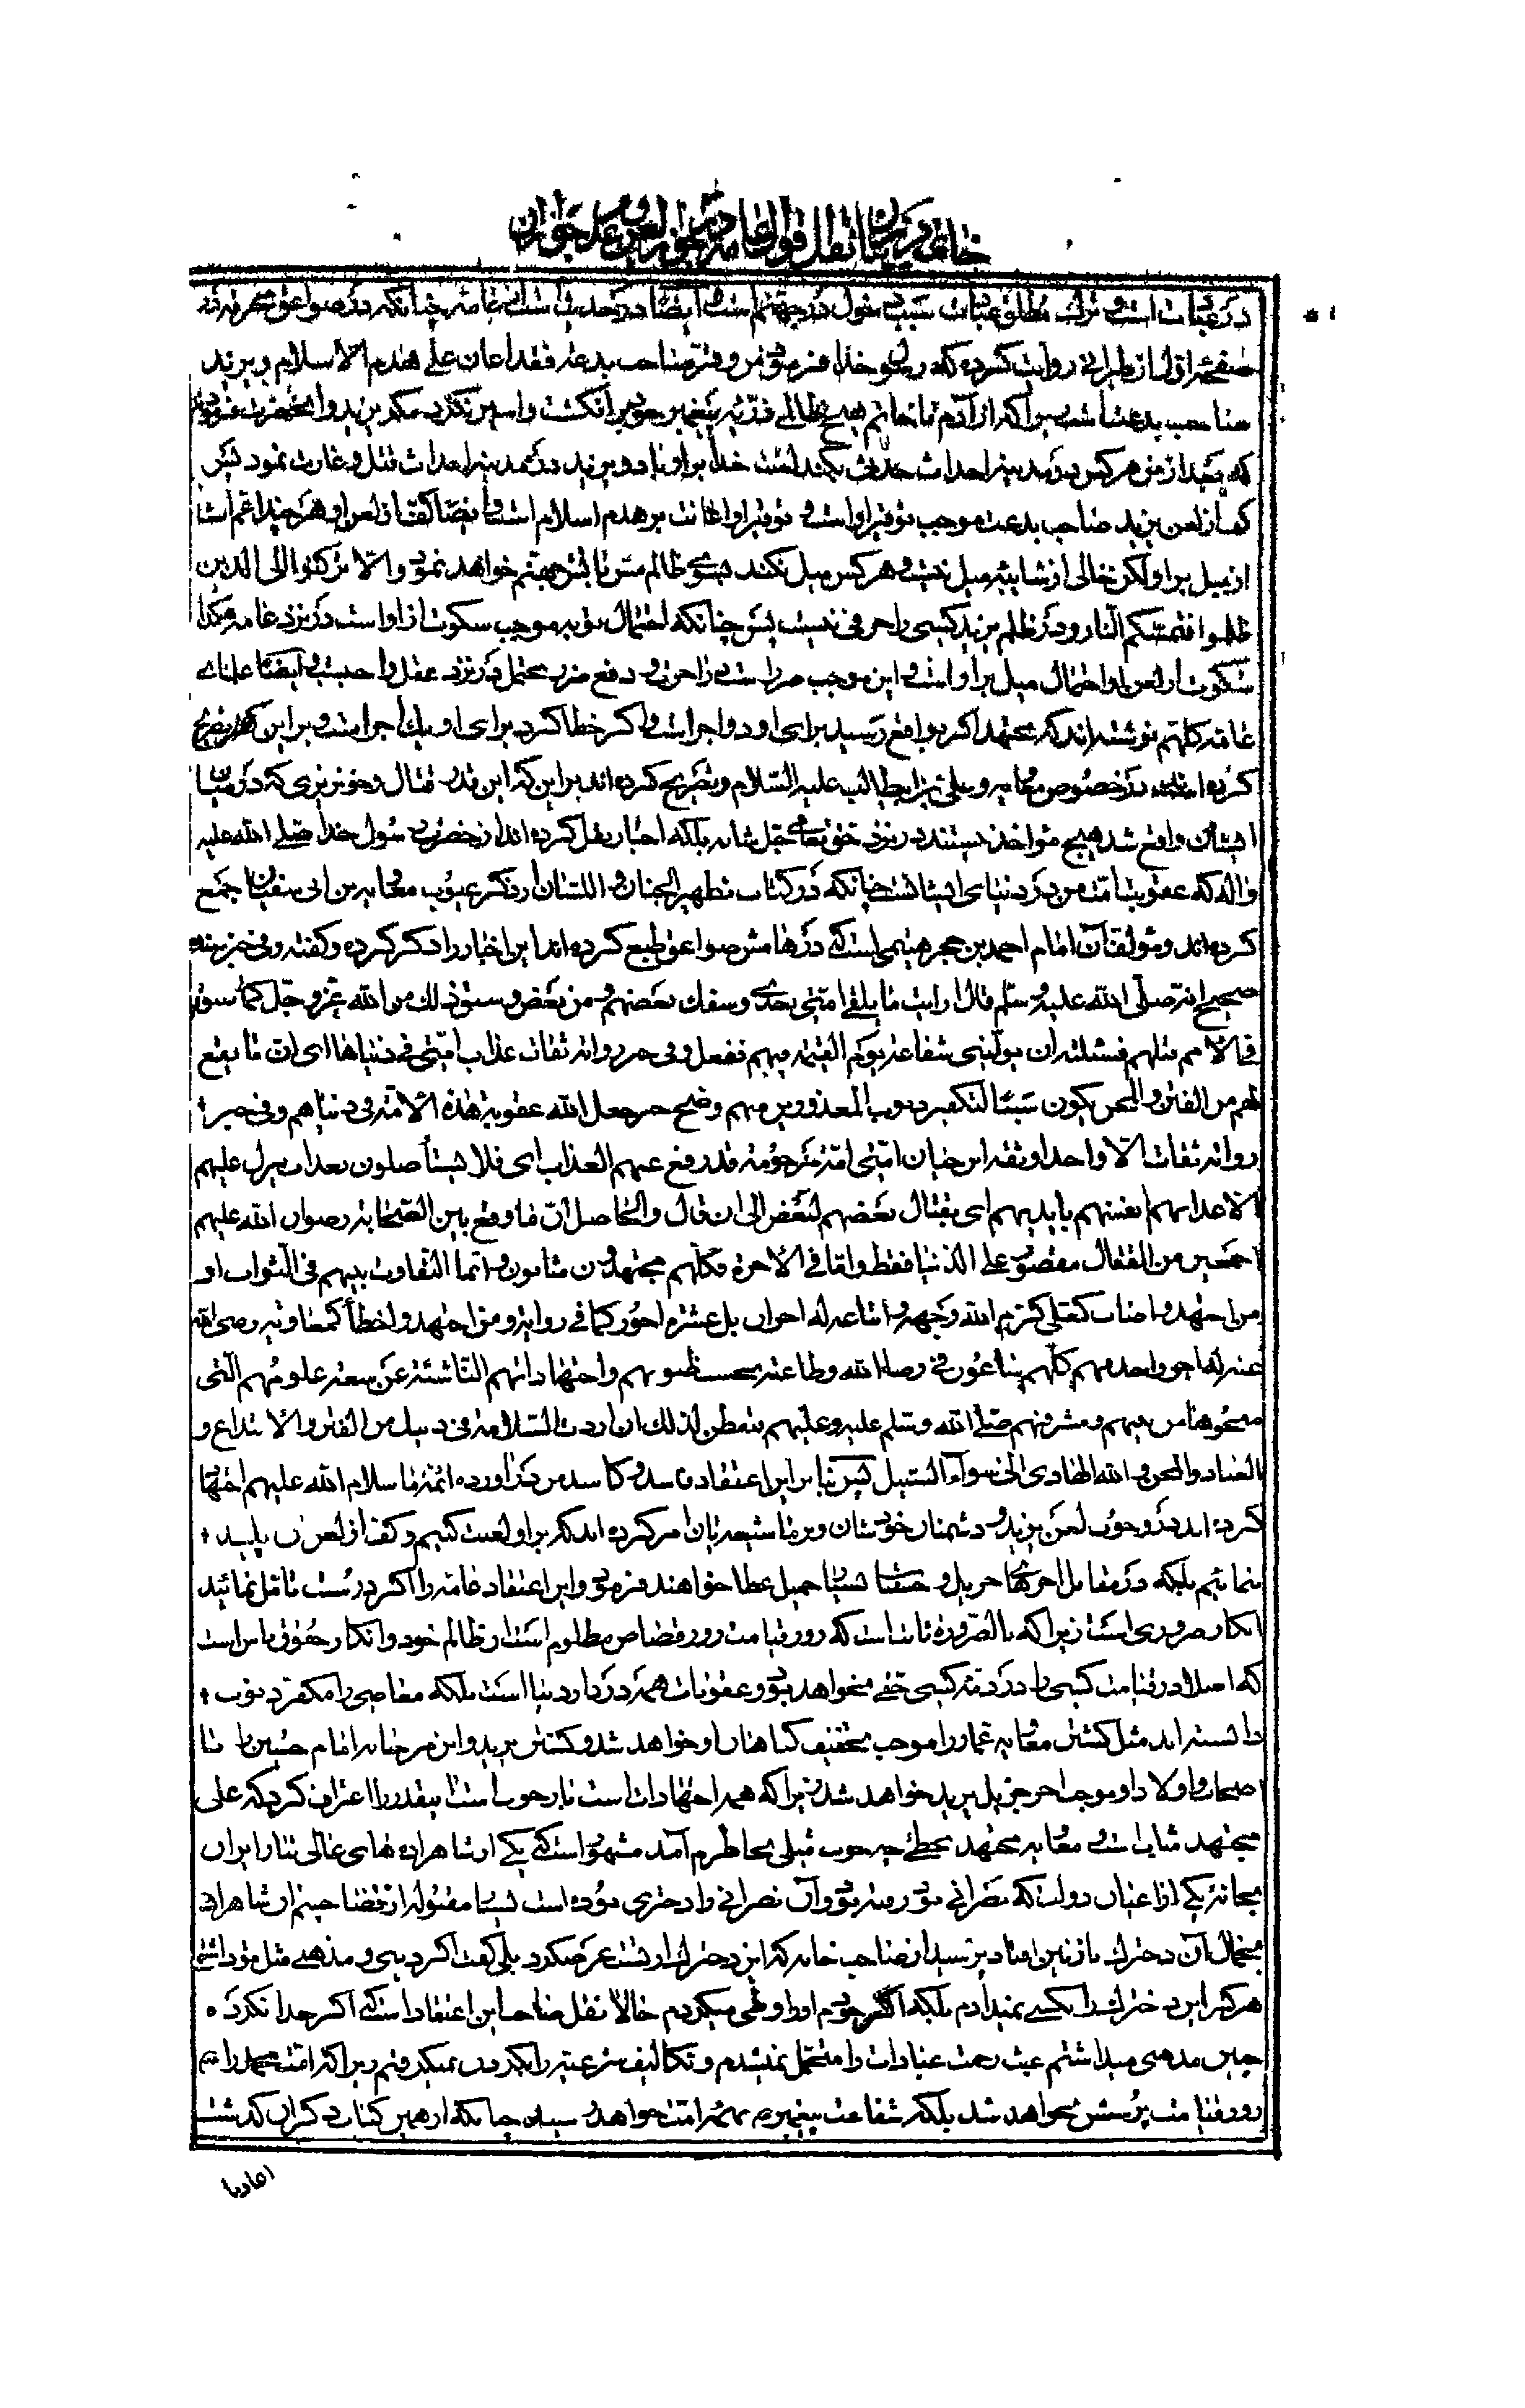 خاتمه در بیان نقل قول عامه در تجویز لعن و عدم جواز آن
در عبادات است و ترک مطلق عبادات سبب دخول در جهنم است و ایضا در حدیث است از عامه چنانکه در صواعق محرقه در
صفحه اول از طبرانی روایت کرده که رسول خدا فرمود من وقر صاحب بدعة فقد اعان علی هدم الاسلام و یزید
صاحب بدعتها است زیرا که از آدم تا خاتم هیچ ظالمی ذریه پیغمبر خود را نکشت و اسیر نکرد مگر یزید و آنحضرت فرمود
که بعد از من هر کس در مدینه احداث حدثی بکند لعنت خدا بر او باد و یزید در مدینه احداث قتل و غارت نمود پس
کف از لعن یزید صاحب بدعت موجب توقیر او است و توقیر او اعانت بر هدم اسلام است و ایضا کف از لعن او هر چند اعم است
از میل بر او لکن خالی از شایبه میل نیست و هر کس میل بکند بسوی ظالم مس نار جهنم خواهد نمود ولا ترکنوا الی الذین
ظلموا فتمسکم النار و در ظلم یزید کسی را حرفی نیست پس چنانکه احتمال توبه موجب سکوت از او است در نزد عامه هکذا
سکوت از لعن او احتمال میل بر او است و این موجب ضرر است در آخرت و دفع ضرر محتمل در نزد عقل واجب است و ایضا علمای
عامه کلهم نوشته‌اند که مجتهد اگر بواقع رسید برای او دو اجر است و اگر خطا کرد برای او یک اجر است و بر این که تصریح
کرده‌اند در خصوص معاویه و علی بن ابیطالب علیه السلام و تصریح کرده‌اند بر این که این قدر قتال و خونریزی که در میان
ایشان واقع شد هیچ مؤاخذ نیستند در نزد حق تعالی جل شانه بلکه اخبار نقل کرده‌اند از حضرت رسول خدا صلی الله علیه
و اله که عقوبت امت من در دنیای ایشانست چنانکه در کتاب تطهیر الجنان و اللسان از ذکر عیوب معاویه بن ابی سفیان جمع
کرده‌اند و مؤلف آن امام احمد بن حجر هیتمی است که در هامش صواعق طبع کرده‌اند این اخبار را ذکر کرده و گفته و فی خبر سنده
صحیح انه صلی الله علیه و سلم قال رایت ما یلقی امتی بعدی و سفک بعضهم من بعض و سبق ذلک من الله عز و جل کما سبق
فی الامم قبلهم فسئلته ان یولینی شفاعة یوم القیمة فیهم ففعل و فی خبر رواته ثقات عذاب امتی فی دنیاها ای ان ما یقع
لهم من الفتن و المحن یکون سببا لتکفیر ذنوب المعذورین منهم و صح خبر جعل الله عقوبة هذه الامة فی دنیاهم و فی خبر
رواته ثقات الا واحدا وثقه ابن حبان امتی امة مرحومة قد رفع عنهم العذاب ای فلا یستاصلون بعذاب ینزل علیهم
الا عذابهم انفسهم بایدیهم ای بقتال بعضهم لبعض الی ان قال و الحاصل ان ما وقع بین الصحابة رضوان الله علیهم
اجمعین من القتال مقصور علی الدنیا فقط و اما فی الاخرة فکلهم مجتهدون مثابون و انما التفاوت بینهم فی الثواب اذ
من اجتهد و اصاب کعلی کرم الله وجهه و اتباعه له اجران بل عشرة اجور کما فی روایة و من اجتهد و اخطأ کمعاویة رضی الله
عنه له اجر واحد فهم کلهم ساعون فی رضاء الله و طاعته بحسب ظنونهم و اجتهاداتهم الناشئة عن سعة علومهم التی
منحوها من نبیهم و مشرفهم صلی الله و سلم علیه و علیهم فتفطن لذلک ان اردت السلامة فی دینک من الفتن و الابتداع و
العناد و المحن و الله الهادی الی سواء السبیل پس بنا بر این اعتقاد فاسد و کاسد در آورده ائمه ما سلام الله علیهم اجتهاد
کرده‌اند در وجوب لعن یزید و دشمنان خودشان و بر ما شیعیان امر کرده‌اند که بر او لعنت کنیم و کف از لعن آن پلید
ننمائیم بلکه در مقابل اجرهای جزیل و حسنات بسیار جمیل عطا خواهند فرمود و این اعتقاد عامه را اگر درست تامل نمائید
انکار ضروری است زیرا که بالضروره ثابت است که روز قیامت روز قصاص مظلوم است از ظالم خود و انکار حقوق ناس است
که اصلا در قیامت کسی را در ذمه کسی حقی نخواهد بود و عقوبات همه در دار دنیا است بلکه معاصی را مکفر ذنوب
دانسته‌اند مثل کشتن معاویه عمار را موجب تخفیف گناهان او خواهد شد و کشتن یزید و ابن مرجانه امام حسین را با
اصحاب و اولاد او موجب اجر جزیل یزید خواهد شد زیرا که همه اجتهادات است باز خوب است اینقدر را اعتراف کرد که علی
مجتهد مثاب است و معاویه مجتهد مخطی چه خوب مثلی بخاطرم آمد مشهور است که یکی از شاهزاده‌های عالی تبار ایران
بخانه یکی از اعیان دولت که نصرانی بود رفته بود و آن نصرانی را دختری بوده است بسیار مقبوله از قضا چشم آن شاهزاده
بجمال آن دختر نازنین افتاد پرسید از صاحب خانه که این دختر از کیست عرض کرد بلی گفت اگر دینی و مذهبی مثل تو داشتم
هرگز این دختر را بکسی نمیدادم بلکه خودم او را وطی میکردم حالا نقل صاحب این اعتقاد است که اگر خدا نکرده
چنین مذهبی میداشتم عبث زحمت عبادات را متحمل نمیشدم و تکالیف شرعیه را بگردن نمیگرفتم زیرا که امت محمد را در
روز قیامت پرسش نخواهد شد بلکه شفاعت پیغمبر بهمه امت خواهد رسید چنانکه از همین کتاب ذکر آن گذشت